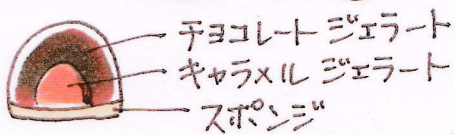 チョコレートジェラート
キャラメルジェラート
スポンジ